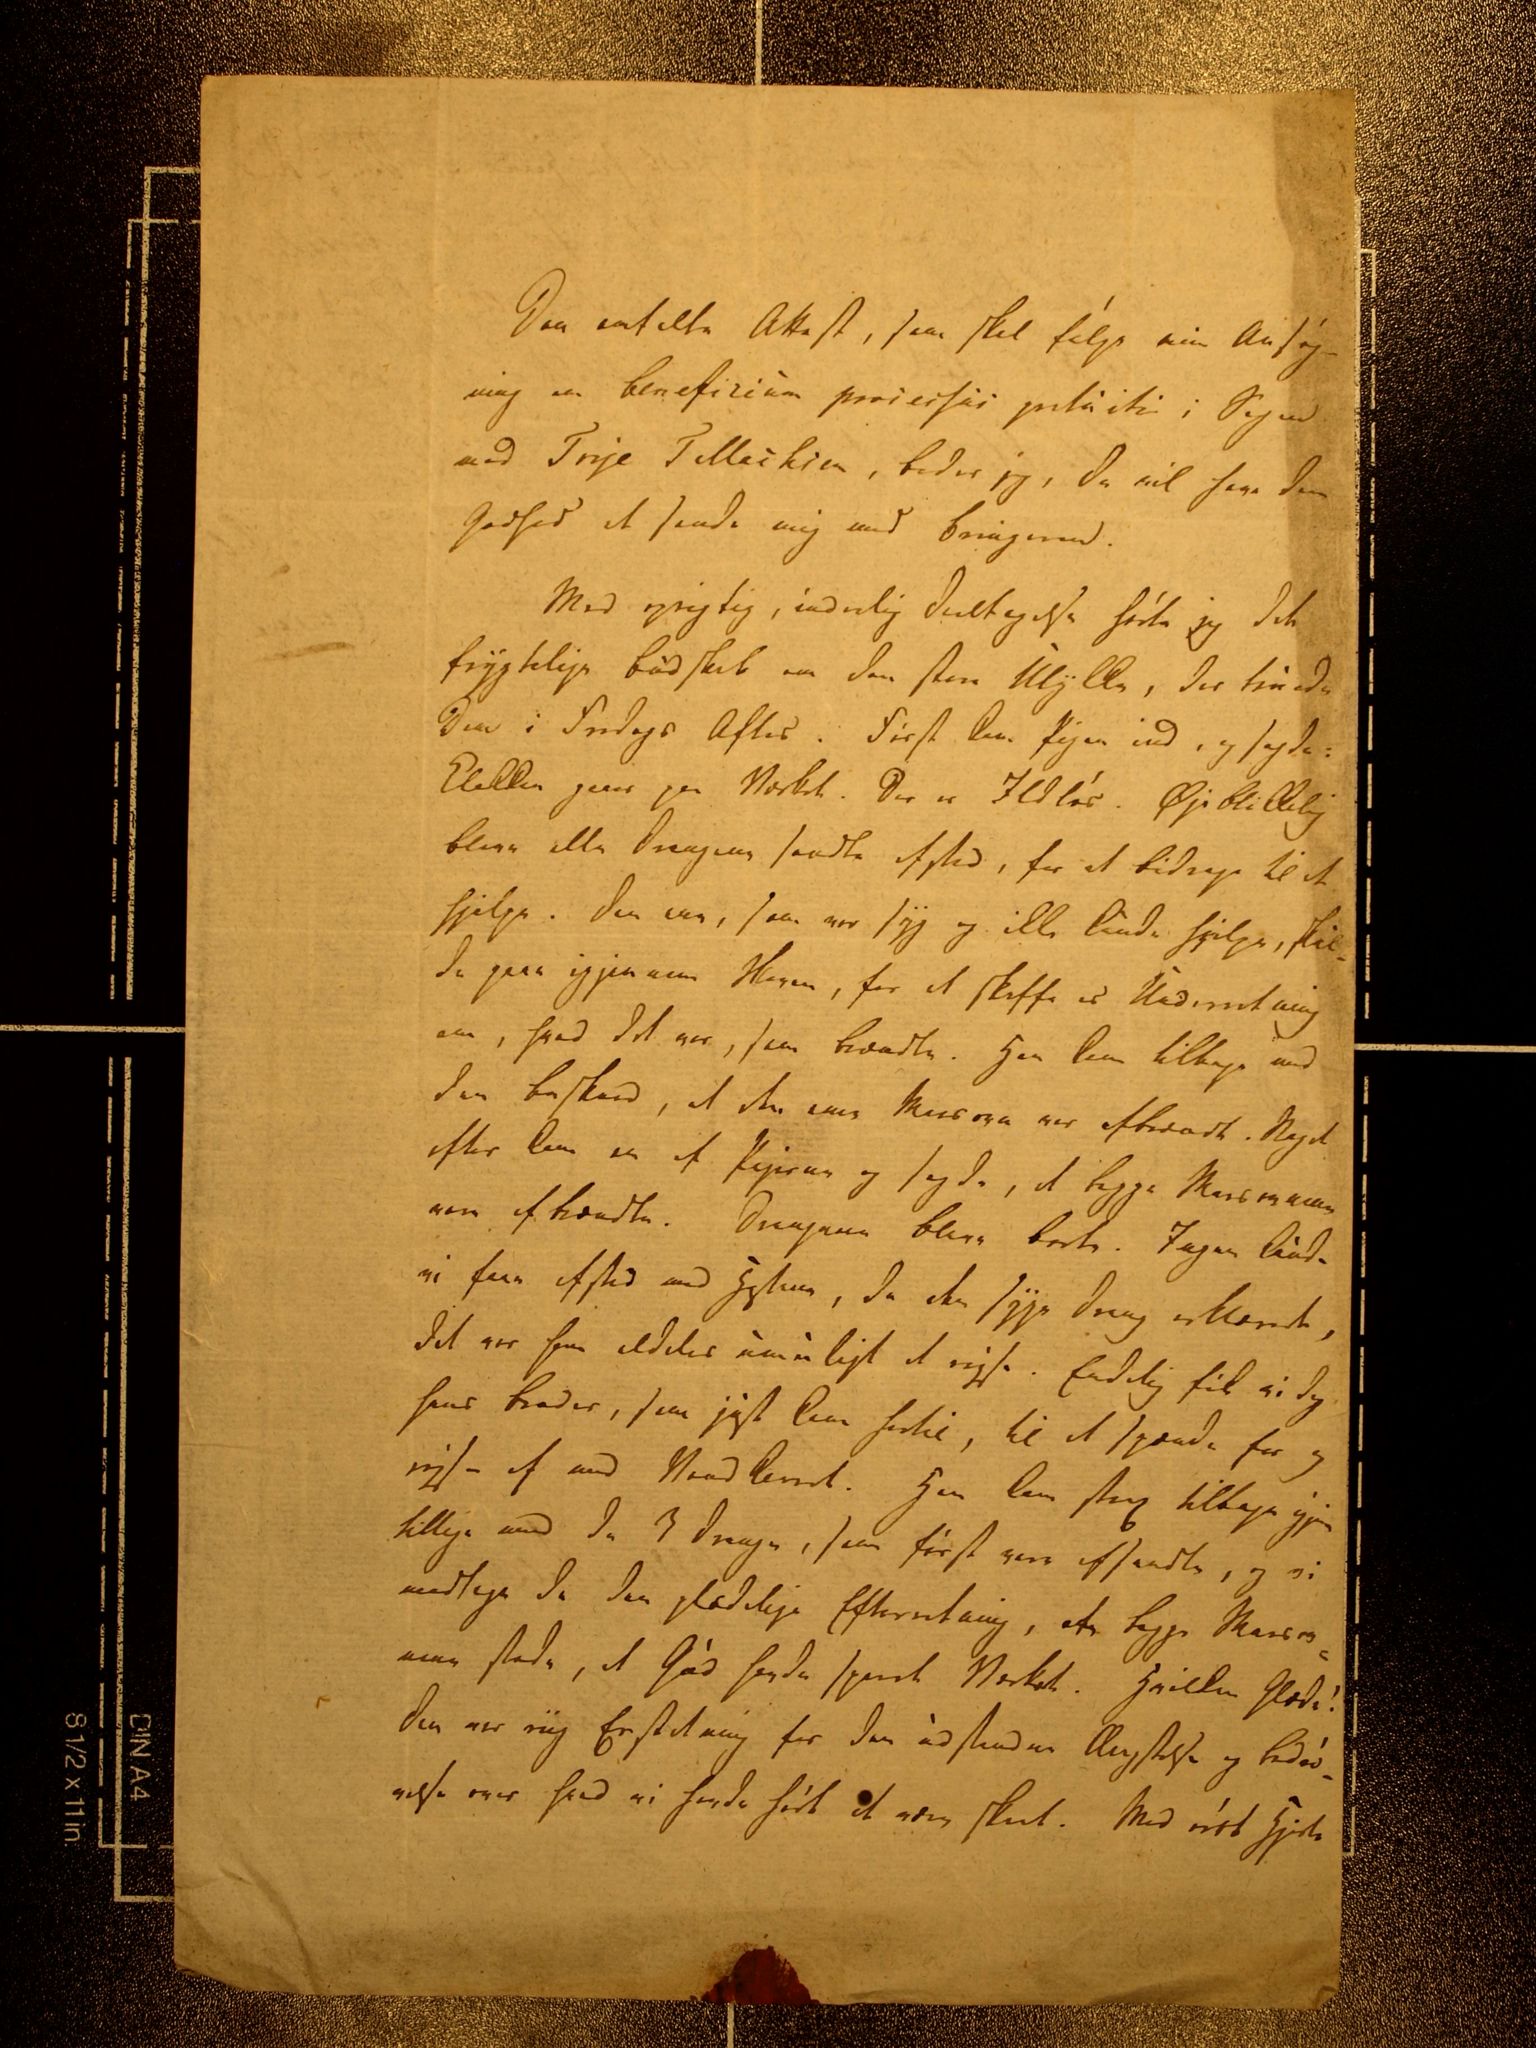 Den omtalte Attest, som skal følge min Ansøg-
ning om beneficium processus gratuiti i Sagen
mod Terje Tellachsen, beder jeg, De vil have den
Godhed at sende mig med Bringeren.
Med oprigtig, inderlig Deeltagelse hørte jeg det
frygtelige Budskab om den store Ulykke, der truede
Dem i Fredags Aftes. Først kom Pigen ind, og sagde:
Klokken gaaer paa Værket. Der er Ildløs. Øjeblikkelig
bleve alle Drengene sendte afsted, for at bidrage til at
hjelpe. Den ene, som var syg og ille kunde hjelpe, skul-
de gaae igjennem Haven, for at skaffe os Underretning
om, hvad det var, som brændte. Han kom tilbage med
den Beskeed, at den ene Masovn var afbrændt. Noget
efter kom en af Pigerne og sagde, at begge Masovnene
vare afbrændte. Drengene bleve borte. Ingen kunde
vi faae afsted med Hestene, da den syge Dreng erklærede,
det var ham aldeles umuligt at rejse. Endelig fik vi dog
hans Broder, som just kom hertil, til at spænde for og
rejse af med Vandkarret. Han kom strax tilbage igjen
tillige med de 3 Drenge, som først vare afsendte, og vi
modtoge da den glædelige Efterretning, at begge Masov-
nene stode, at Gud havde sparet Værket. Hvilken Glæde!
den var riig Erstatning for den udstandne Ængstelse og Bedrø-
velse over hvad vi havde hørt at være skeet. Med rørt Hjerte
DIN A4
8 1/2 x 11 in.